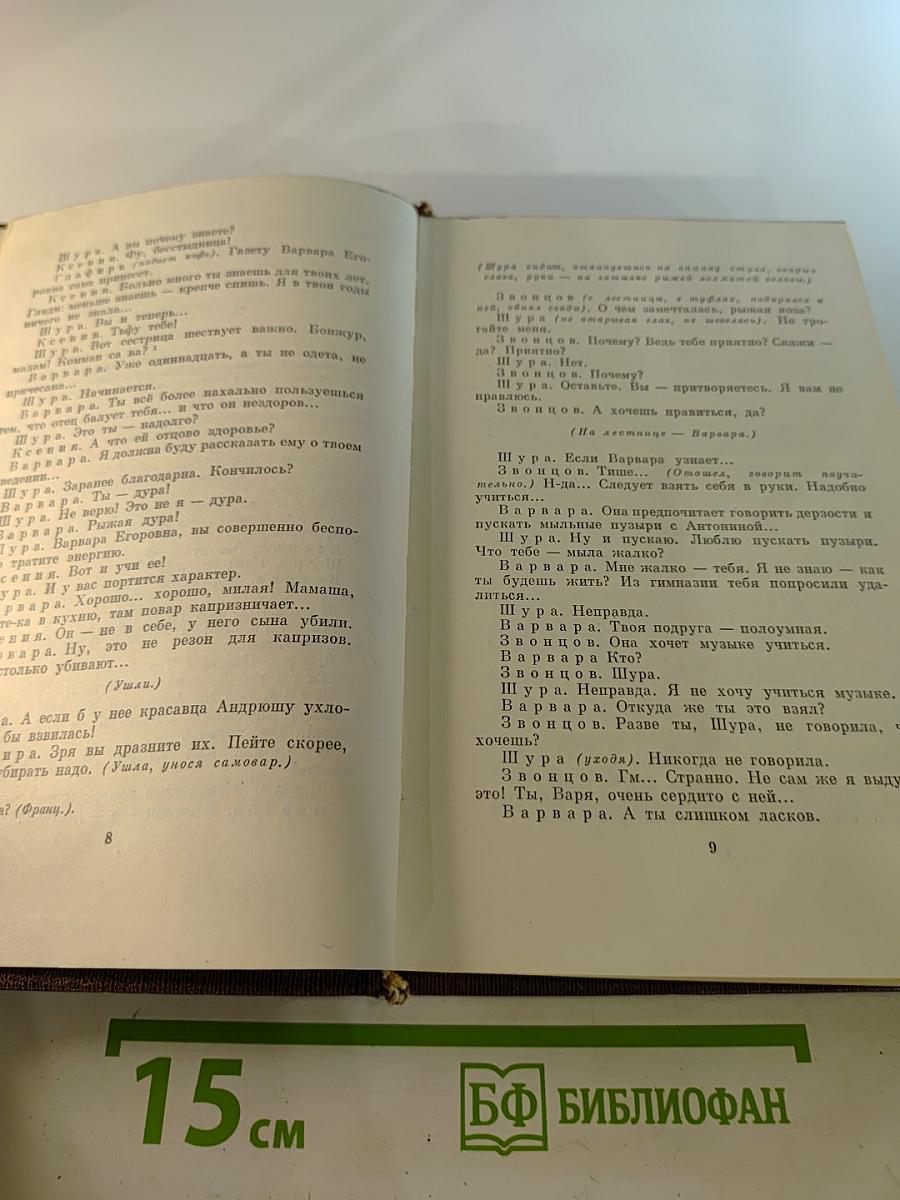 Шура. А вы почему знаете?
Ксения. Фу, бесстыдница!
Глафира (подает кофе). Газету Варвара Его-
ровна сама принесет.
Ксения. Больно много ты знаешь для твоих лет.
Гляди: меньше знаешь — крепче спишь. Я в твои годы
ничего не знала...
Шура. Вы и теперь...
Ксения. Тьфу тебе!
Шура. Вот сестрица шествует важно. Бонжур,
мадам! Комман са ва? ¹
Варвара. Уже одиннадцать, а ты не одета, не
причесана...
Шура. Начинается.
Варвара. Ты всё более нахально пользуешься
тем, что отец балует тебя... и что он нездоров...
Шура. Это ты — надолго?
Ксения. А что ей отцово здоровье?
Варвара. Я должна буду рассказать ему о твоем
ведении...
Шура. Заранее благодарна. Кончилось?
Варвара. Ты — дура!
Шура. Не верю! Это не я — дура.
Варвара. Рыжая дура!
Шура. Варвара Егоровна, вы совершенно беспо-
о тратите энергию.
сения. Вот и учи ее!
ура. И у вас портится характер.
рвара. Хорошо... хорошо, милая! Мамаша,
те-ка в кухню, там повар капризничает...
ения. Он — не в себе, у него сына убили.
рвара. Ну, это не резон для капризов.
столько убивают...
(Ушли.)
а. А если б у нее красавца Андрюшу ухло-
бы взвилась!
ира. Зря вы дразните их. Пейте скорее,
убирать надо. (Ушла, унося самовар.)
а? (Франц.).
8
(Шура сидит, откинувшись на спинку стула, закрыв
глаза, руки — на затылке рыжей лохматой головы.)
Звонцов (с лестницы, в туфлях, подкрался к
ней, обнял сзади). О чем замечталась, рыжая коза?
Шура (не открывая глаз, не шевелясь). Не тро-
гайте меня.
Звонцов. Почему? Ведь тебе приятно? Скажи —
да? Приятно?
Шура. Нет.
Звонцов. Почему?
Шура. Оставьте. Вы — притворяетесь. Я вам не
нравлюсь.
Звонцов. А хочешь нравиться, да?
(На лестнице — Варвара.)
Шура. Если Варвара узнает...
Звонцов. Тише... (Отошел, говорит поучи-
тельно.) Н-да... Следует взять себя в руки. Надобно
учиться...
Варвара. Она предпочитает говорить дерзости и
пускать мыльные пузыри с Антониной...
Шура. Ну и пускаю. Люблю пускать пузыри.
Что тебе — мыла жалко?
Варвара. Мне жалко — тебя. Я не знаю — как
ты будешь жить? Из гимназии тебя попросили уда-
литься...
Шура. Неправда.
Варвара. Твоя подруга — полоумная.
Звонцов. Она хочет музыке учиться.
Варвара Кто?
Звонцов. Шура.
Шура. Неправда. Я не хочу учиться музыке.
Варвара. Откуда же ты это взял?
Звонцов. Разве ты, Шура, не говорила, ч
хочешь?
Шура (уходя). Никогда не говорила.
Звонцов. Гм... Странно. Не сам же я выду
это! Ты, Варя, очень сердито с ней...
Варвара. А ты слишком ласков.
9
15 см
БФ БИБЛИОФАН